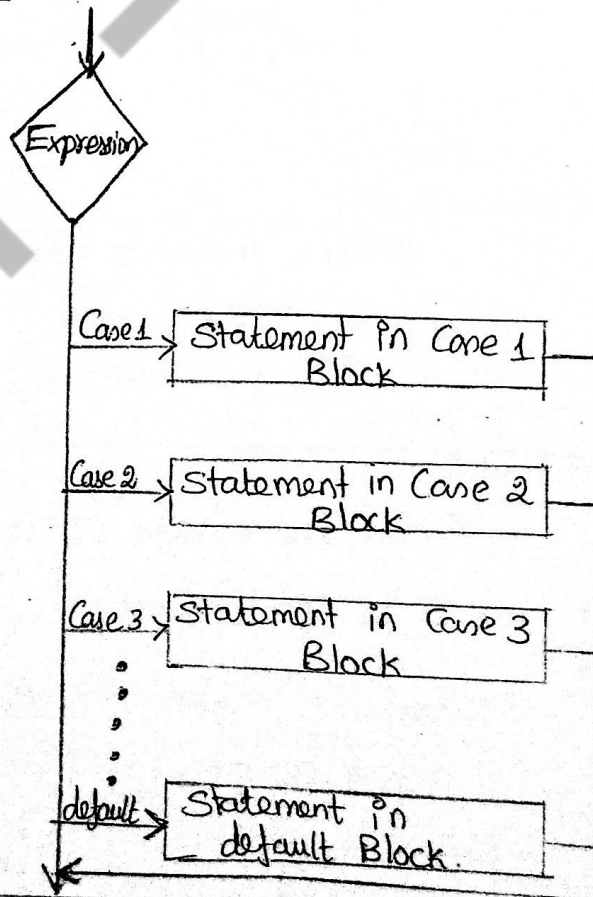 Expression
Case 1
Statement in Case 1
Block
Case 2
Statement in Case 2
Block
Case 3
Statement in Case 3
Block
default
Statement in
default Block.